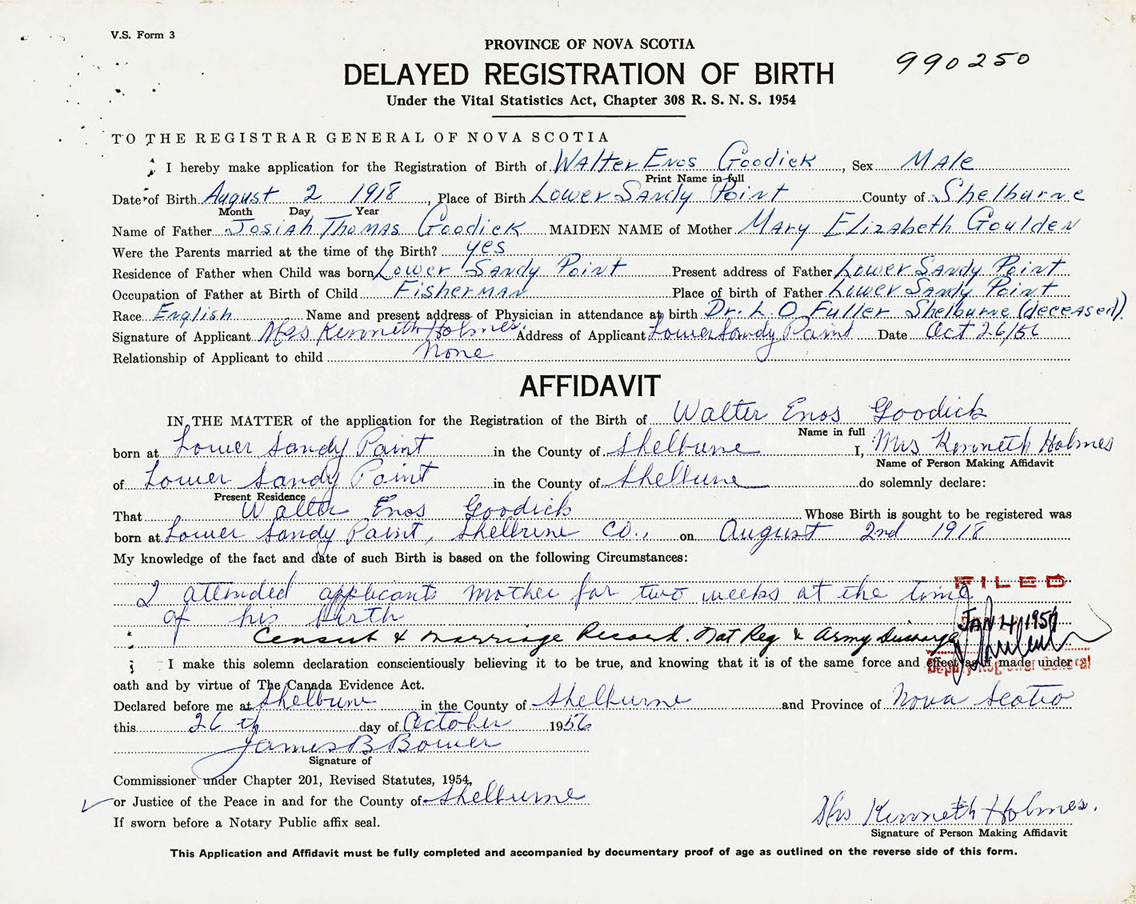 V.S. Form 3
PROVINCE OF NOVA SCOTIA
990250
DELAYED REGISTRATION OF BIRTH
Under the Vital Statistics Act, Chapter 308 R. S. N. S. 1954
TO THE REGISTRAR GENERAL OF NOVA SCOTIA
I hereby make application for the Registration of Birth of Walter Enos Goodick, Sex Male
Print Name in full
Date of Birth August 2 1918, Place of Birth Lower Sandy Point County of Shelburne
Month Day Year
Name of Father Josiah Thomas Goodick MAIDEN NAME of Mother Mary Elizabeth Goulden
Were the Parents married at the time of the Birth? yes
Residence of Father when Child was born Lower Sandy Point Present address of Father Lower Sandy Point
Occupation of Father at Birth of Child Fisherman Place of birth of Father Lower Sandy Point
Race English Name and present address of Physician in attendance at birth Dr. L. O Fuller Shelburne (deceased).
Signature of Applicant Mrs Kenneth Holmes. Address of Applicant Lower Sandy Point Date Oct 26/56
Relationship of Applicant to child None
AFFIDAVIT
IN THE MATTER of the application for the Registration of the Birth of Walter Enos Goodick
Name in full
born at Lower Sandy Point in the County of Shelburne I, Mrs Kenneth Holmes
Name of Person Making Affidavit
of Lower Sandy Point in the County of Shelburne do solemnly declare:
Present Residence
That Walter Enos Goodick Whose Birth is sought to be registered was
born at Lower Sandy Point, Shelburne Co., on August 2nd 1918
My knowledge of the fact and date of such Birth is based on the following Circumstances:
FILED
I attended applicants mother for two weeks at the time
of his birth
JAN 4 1957
Census & Marriage Record. Nat Reg & Army Discharge
I make this solemn declaration conscientiously believing it to be true, and knowing that it is of the same force and effect as if made under
Deputy Registrar General
oath and by virtue of The Canada Evidence Act.
Declared before me at Shelburne in the County of Shelburne and Province of Nova Scotia
this 26th day of October 1956
James B Bower
Signature of
Commissioner under Chapter 201, Revised Statutes, 1954,
or Justice of the Peace in and for the County of Shelburne
If sworn before a Notary Public affix seal.
Mrs Kenneth Holmes.
Signature of Person Making Affidavit
This Application and Affidavit must be fully completed and accompanied by documentary proof of age as outlined on the reverse side of this form.